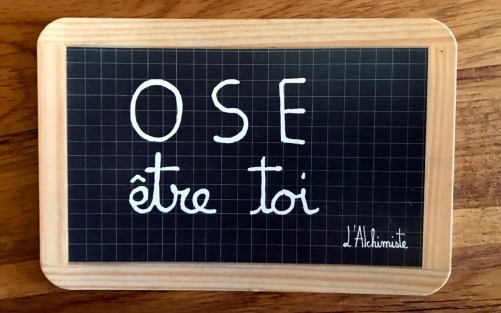 OSE
être toi
L'Alchimiste